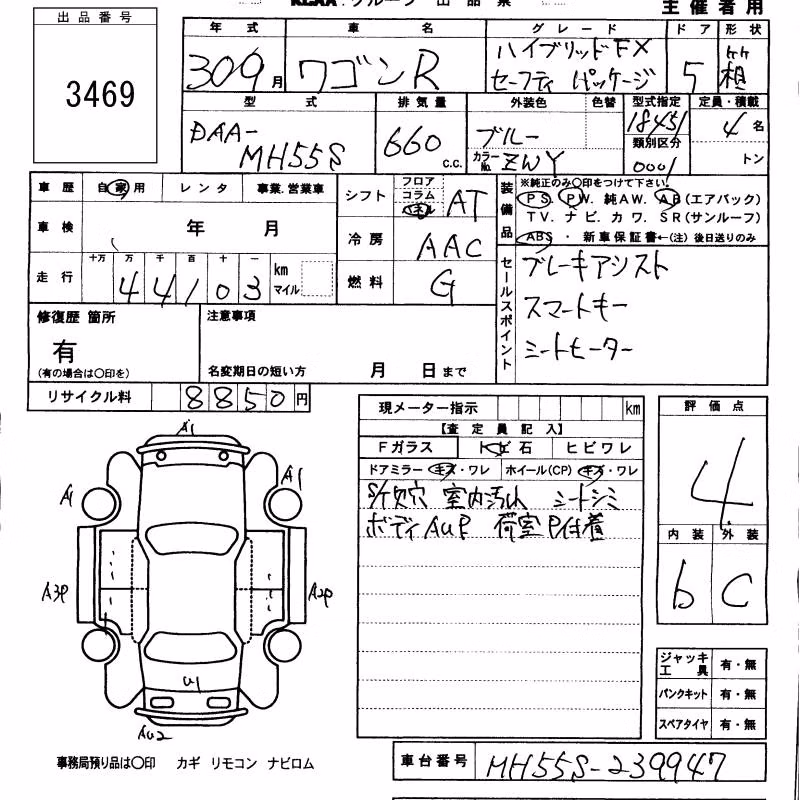 KCAA グループ 出品票
主催者用
出品番号
3469
年式 車名 グレード ドア 形状
309月 ワゴンR ハイブリッドFX 5 箱
セーフティ パッケージ
型式 排気量 外装色 色替 型式指定 定員・積載
DAA- 660 c.c. ブルー 18451 4名
MH55S カラーNo. ZWY 類別区分 0001 トン
車歴 自家用 レンタ 事業.営業車
車検 年 月
走行 十万 万 千 百 十 一
44103 km マイル
シフト フロア コラム AT
冷房 AAC
燃料 G
装備品 ※純正のみ〇印をつけて下さい。
PS. PW. 純AW. AB(エアバック)
TV. ナビ. カワ. SR(サンルーフ)
ABS ・ 新車保証書←(注)後日送りのみ
セールスポイント
ブレーキアシスト
スマートキー
シートヒーター
修復歴 箇所
有
(有の場合は〇印を)
注意事項
名変期日の短い方 月 日まで
リサイクル料 8850円
現メーター指示 km
【査定員記入】
Fガラス トビ石 ヒビワレ
ドアミラー キズ・ワレ ホイール(CP) キズ・ワレ
S/ケ欠穴 室内汚れ シートシミ
ボディAuP 荷室P付着
評価点
4
内装 外装
b C
A1
A1 A1
A3P A2P
U1
AU2
ジャッキ工具 有・無
パンクキット 有・無
スペアタイヤ 有・無
事務局預り品は〇印 カギ リモコン ナビロム
車台番号 MH55S-239947